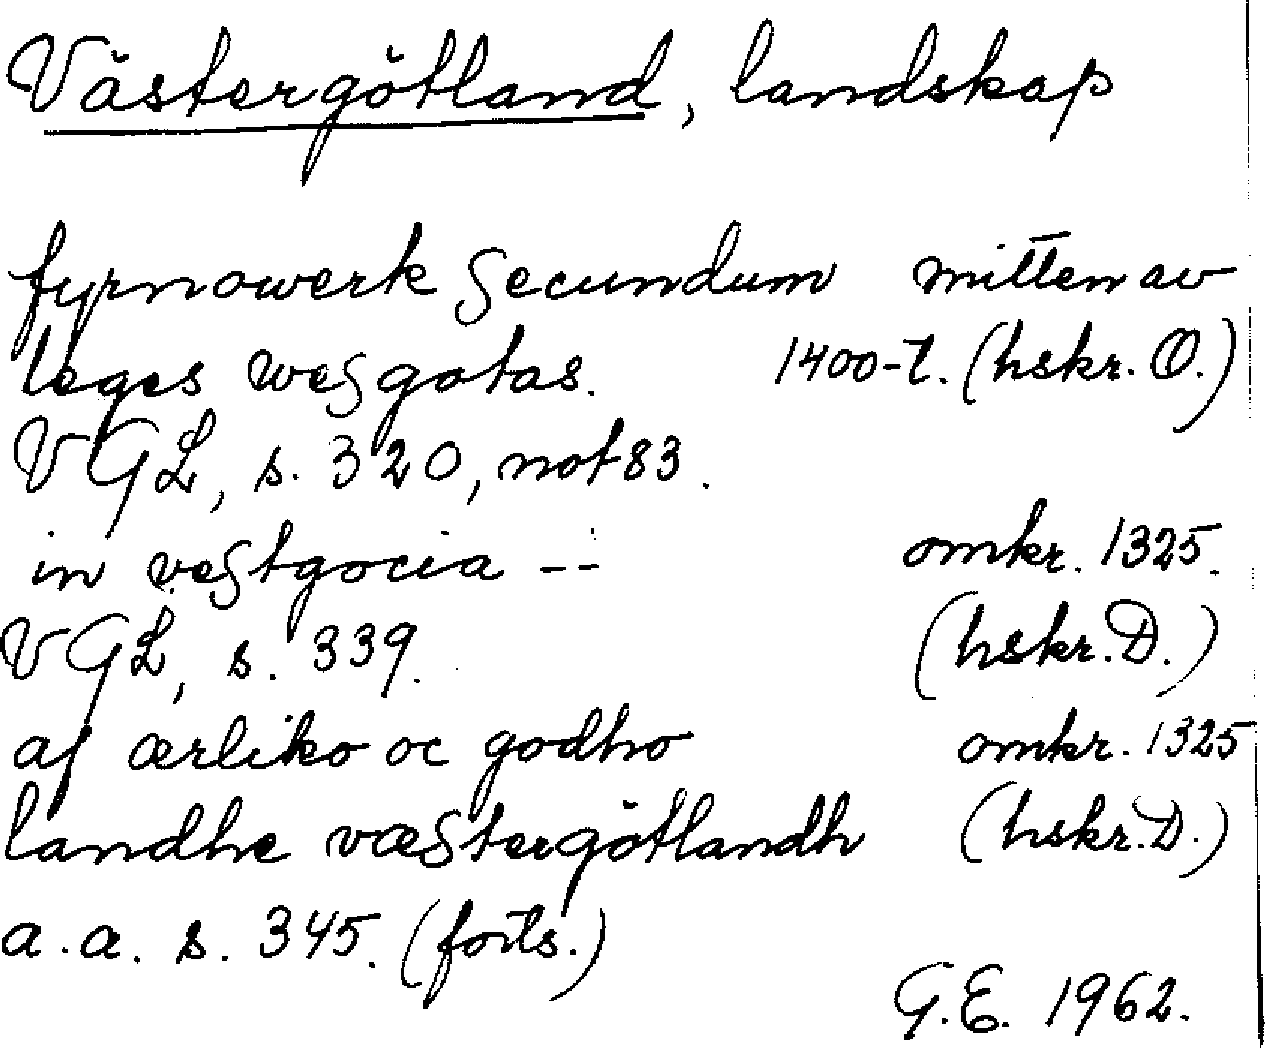 Västergötland, landskap
fyrnowerk ſecundum mitten av
leges weſgotas. 1400-t. (hskr. O.)
VGL, s. 320, not 83.
in veſtgocia -- omkr. 1325.
VGL, s. 339. (hskr. D.)
af ærliko oc godho omkr. 1325
landhe væſtergötlandh (hskr. D.)
a. a. s. 345. (forts.)
G.E. 1962.